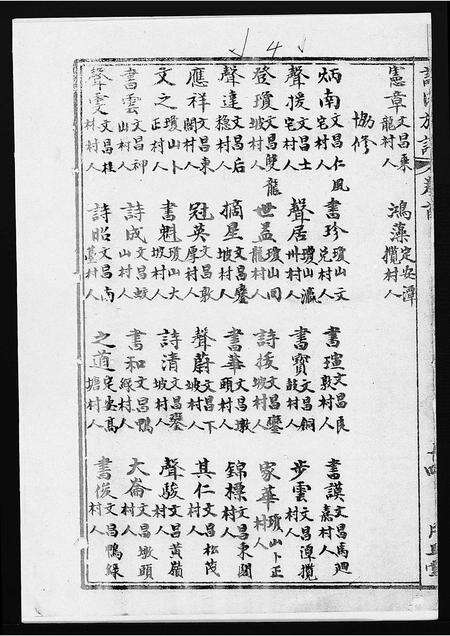 憲章 文昌東龍村人 鴻藻 定安潭欖村人
協修
炳南 文昌仁宅村人 書珍 瓊山文兌村人 書瑄 文昌良敦村人 書謨 文昌禹廻嘉村人
聲援 文昌士宅村人 聲居 瓊山瀛州村人 書寶 文昌銅鼓村人 步雲 文昌潭欖村人
登瓊 文昌雙龍坡村人 世益 瓊山同龍村人 詩援 文昌鑾坡村人 家華 瓊山卜正村人
聲達 文昌后穩村人 摘星 文昌鑾坡村人 書華 文昌墩頭村人 錦標 文昌東閣村人
應祥 文昌東閣村人 冠英 文昌敦厚村人 聲蔚 文昌下坡村人 其仁 文昌松茂村人
文之 瓊山卜正村人 書魁 瓊山大坡村人 詩清 文昌鑾坡村人 聲駿 文昌黃嶺村人
書雲 文昌神山村人 詩成 文昌蛟山村人 書和 文昌鴨綠村人 大崙 文昌墩頭村人
聲雯 文昌桂林村人 詩昭 文昌南村人 之道 定安高塘村人 書俊 文昌鴨綠村人
4